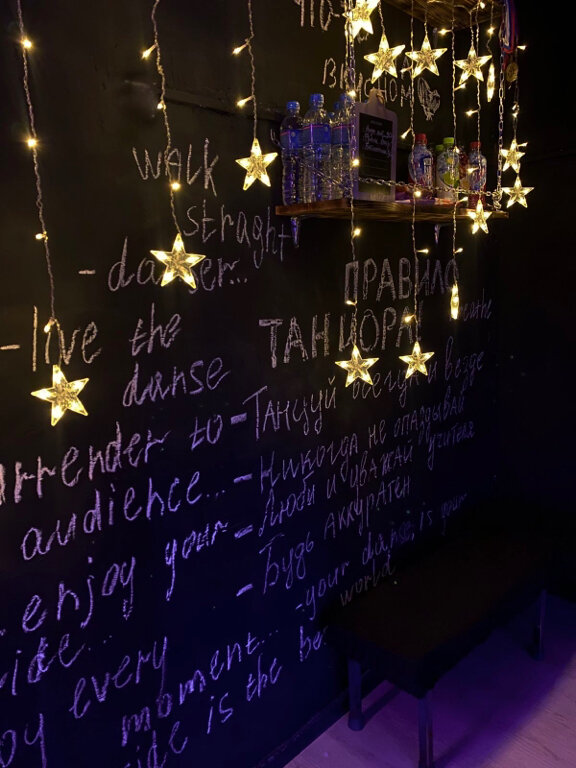 ВКУСНОМ
WALK
straght
- danser...
- live the
danse
surrender to
audience...
enjoy your
ride...
enjoy every
moment...
ride is the be
ПРАВИЛО
ТАНЦОРА!
- Танцуй всегда и везде
- Никогда не опаздывай
- Люби и уважай учителя
- Будь аккуратен
- your danse is your
world